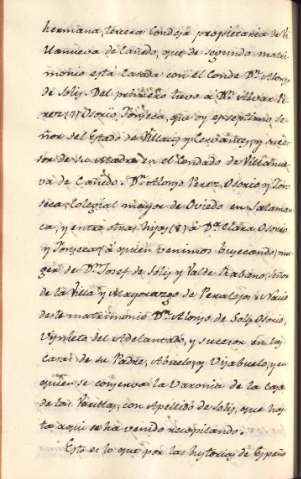 hermana, tercera Condesa propietaria de Vi
llanueva de Cañedo, que de segundo matri
monio está casada con el Conde Dn. Alonso
de Solis. Del primero tuvo á Dn. Alvar Pe
rez Osorio, Fonseca, que oy es septimo Se
ñor del Estado de Villacis y Cervantes, y suce
sor de su Madre en el Condado de Villanue
va de Cañedo. Dn. Alonso Perez Osorio y Fon
seca, Colegial mayor de Oviedo en Salaman
ca, y entre otras hijas (8) á Da. Clara Osorio
y Fonseca, á quien venimos buscando, mu
ger de Dn. Josef de Solis y Valderrabano, Señor
de la Villa y Mayorazgo de Peralejos. Nació
deste matrimonio Dn. Alonso de Solis Osorio,
Visnieto del Adelantado, y sucesor en las
casas de su Padre, Abuelos y Visabuelos, y en
quien se conserva la Varonia de la casa
de los con Apellido de Solis, que has
ta aqui se ha venido recopilando.
Esto es lo que por las historias de España